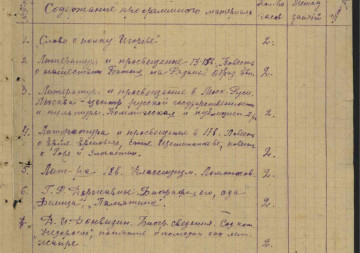 Содержание программного материала
1. Слово о полку Игореве 2.
2. Литература и просвещение 13-15в. Повесть
о нашествии Батыя на Рязань
3. Литература и просвещение в Моск. Руси.
Москва – центр русской государственности
и культуры. Политическая и публицист. 2.
4. Литература и просвещение в 17в. Повесть
о Горе и Злочастии. 2.
5. Лит-ра 18в. Классицизм. Ломоносов. 2.
6. Г. Р. Державин. Биография его, ода
Фелица", "Памятник". 2.
7. Д. И. Фонвизин. Биогр. сведения. Сод. ком.
"Недоросль", понятие о комедии как лит.
жанре. 2.